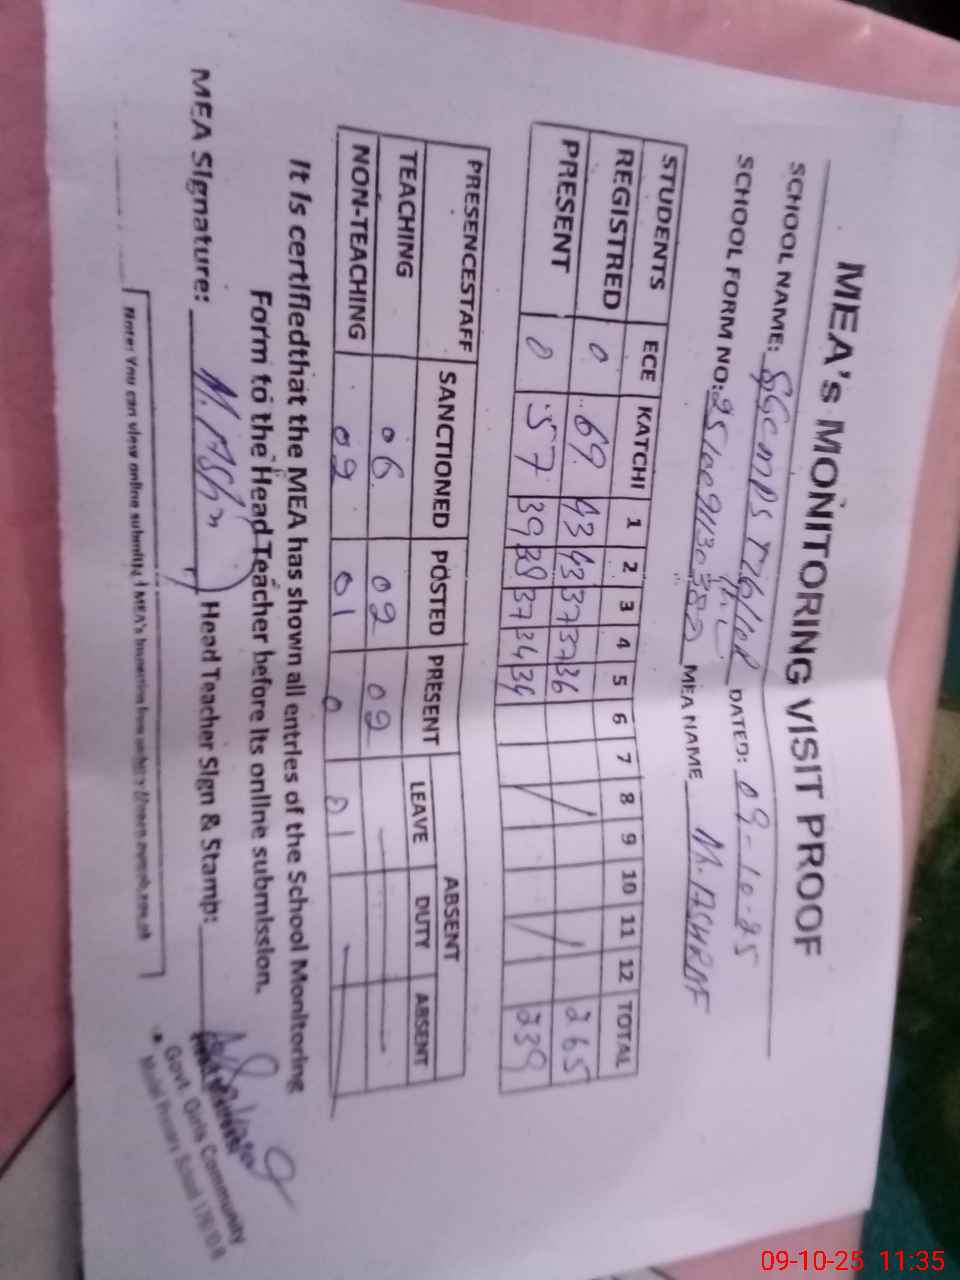 MEA's MONITORING VISIT PROOF
SCHOOL NAME: DATED: 09-10-25
SCHOOL FORM NO: MEA NAME M. ASHRAF
STUDENTS ECE KATCHI 1 2 3 4 5 6 7 8 9 10 11 12 TOTAL
REGISTRED 0 69 43 43 37 37 36 265
PRESENT 0 57 39 38 37 34 34 239
PRESENCESTAFF SANCTIONED POSTED PRESENT ABSENT
LEAVE DUTY ABSENT
TEACHING 06 02 02 — — —
NON-TEACHING 02 01 0 01 —
It is certifiedthat the MEA has shown all entries of the School Monitoring
Form to the Head Teacher before its online submission.
MEA Signature: M. Ash Head Teacher Sign & Stamp:
Govt. Girls Community
Model Primary School
Note: You can view online submitted MEA's Inspection from
09-10-25 11:35